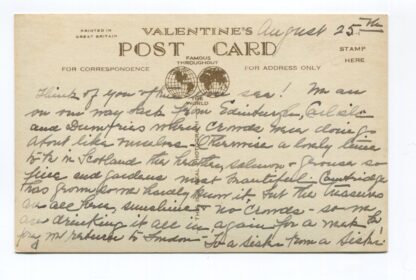 PRINTED IN
GREAT BRITAIN
VALENTINE'S
August 25th
POST CARD
STAMP
HERE
FAMOUS
THROUGHOUT
FOR CORRESPONDENCE
FOR ADDRESS ONLY
THE WORLD
Think of you often you see! I'm an
on our way back from Edinburgh, Carlisle
and Dumfries where crowds were doing
about like ourselves. Otherwise a lovely time
to be in Scotland the heather, salmon & grouse so
fine and gardens most beautiful. Cambridge
has grown some hardly know it, but the treasures
are all here, sunshine & no crowds - so we
are drinking it all in again for a week
we return to London. To a Sister from a Sister